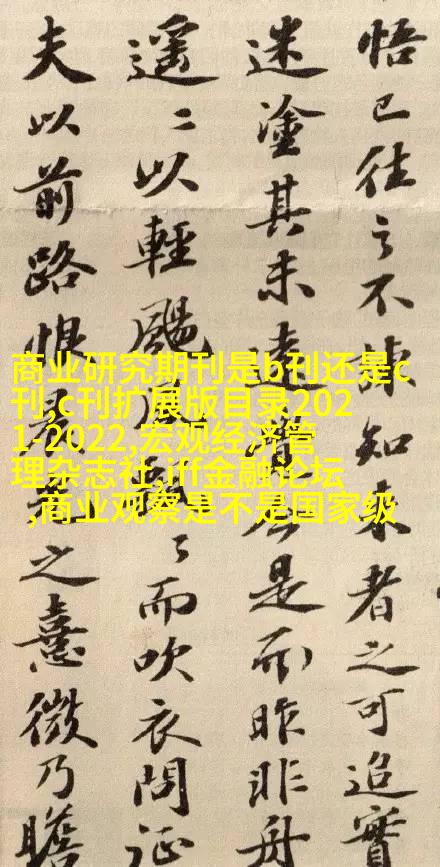 悟已往之不諫知来者之可追實
迷塗其未遠是而昨非舟
遥〻以輕颺風〻而吹衣問征
夫以前路恨之憙微乃瞻
商业研究期刊是b刊还是c
刊,c刊扩展版目录202
1-2022,宏观经济管
理杂志社,iff金融论坛
,商业观察是不是国家级